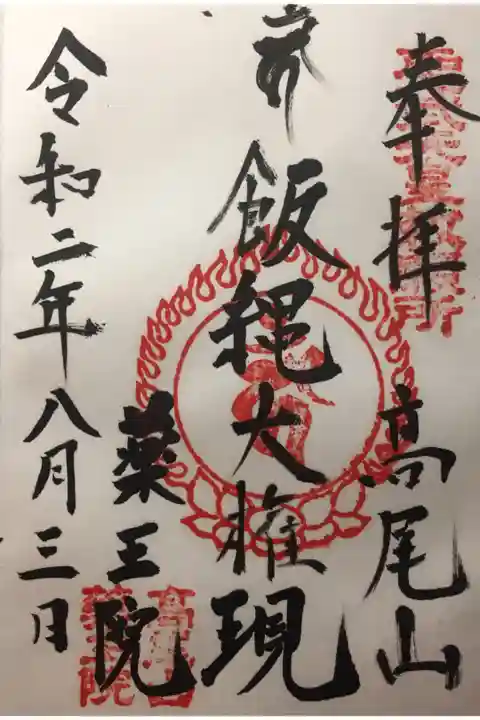 奉拝
高尾山
飯縄大権現
薬王院
令和二年八月三日